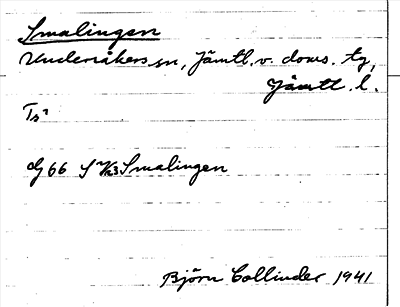 Smalingen
Undersåkers sn, Jämtl. v. doms. tg,
Jämtl. l.
Ts
66 S Smalingen
Björn Collinder 1941